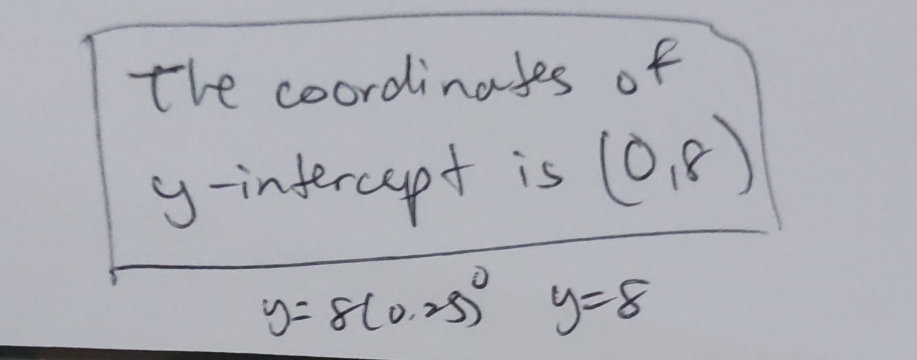 The coordinates of
y-intercept is (0,8)
y=8(0.25)⁰ y=8